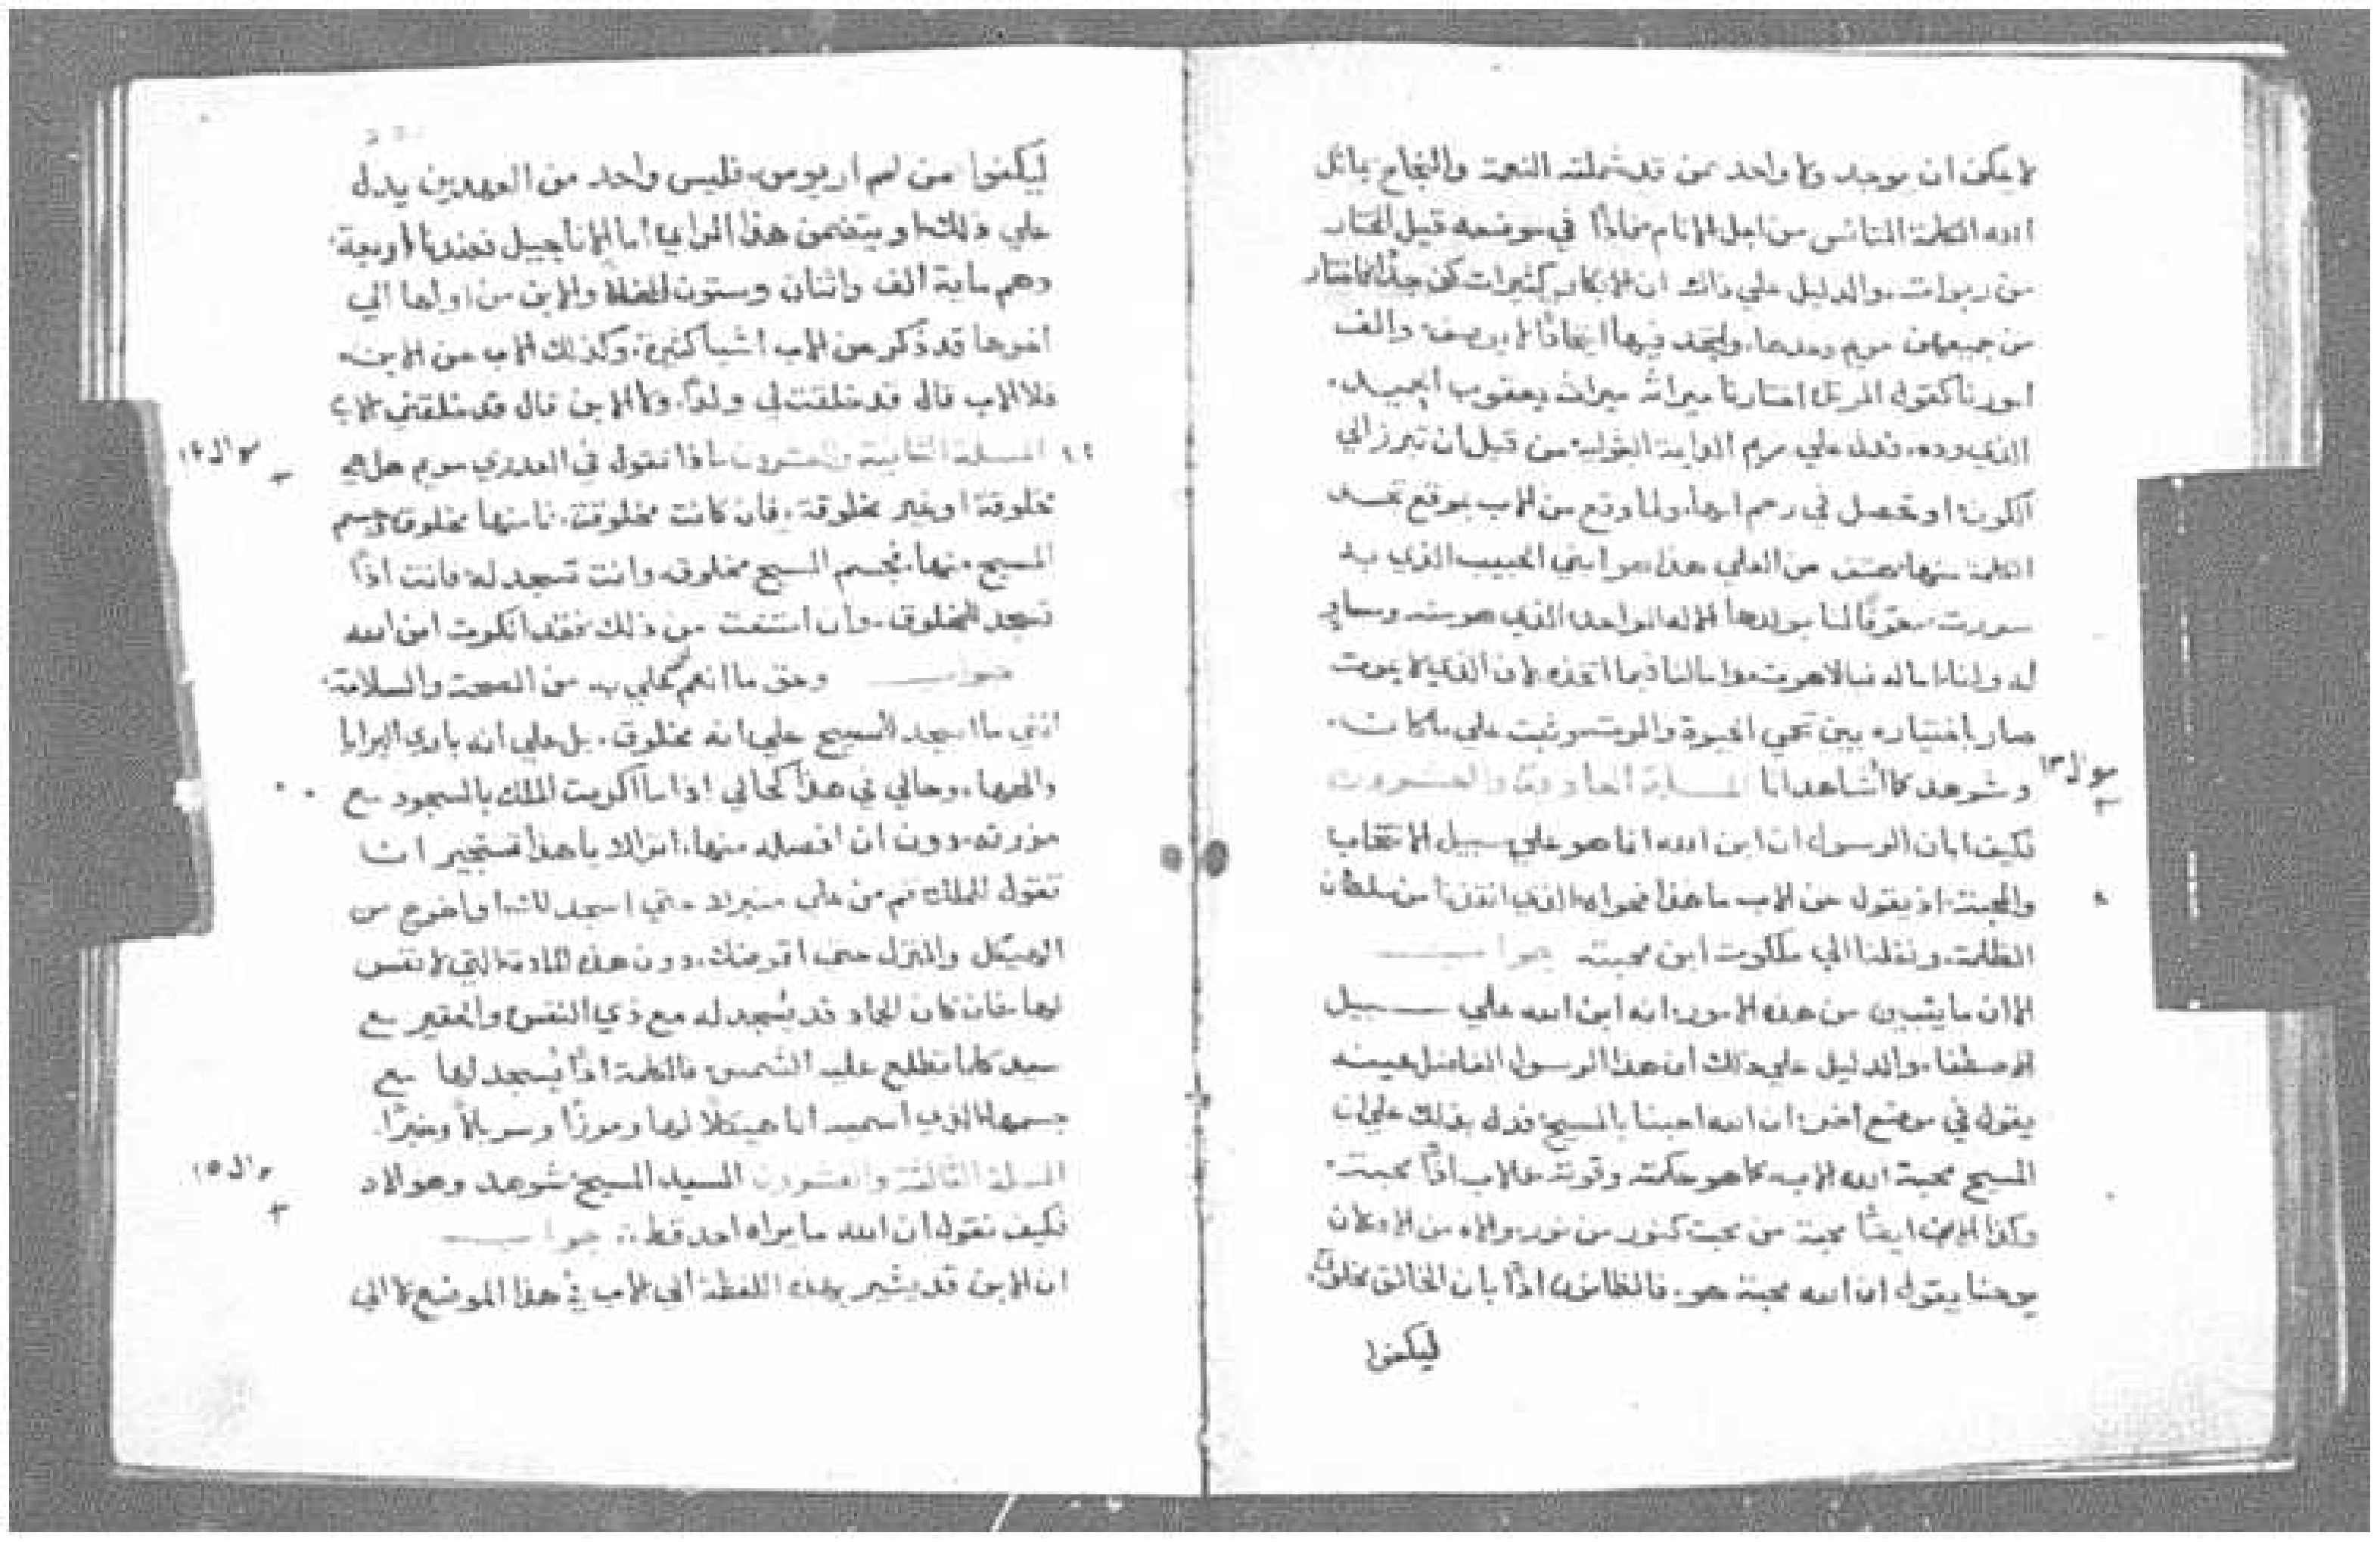 لا يمكن ان يوجد ولا واحد ممن قد شملته النعمة والنجاح ياتل
الله الكلمة المتانس من اجل الانام
من ربوات والدليل علي ذلك ان الابكار كثيرات كن جدًا فاختار
من جميعهن مريم وحدها واتحد فيها اتحادًا لا يوصف والف
امورنا كقول المرتل اختار لنا ميراثه ميراث يعقوب الجميل
الذي وده فدل علي مريم من قبل ان تبرز الي
الكون او تحصل في رحم امها ولما وقع من الاب بتوقع تجسد
الكلمة منها هتف من العلي هذا هو ابني الحبيب الذي به
سررت معرّفًا لنا بولدها الاله الواحد الذي هو منه ومساوٍ
له
صار باختياره بين الحيوة والموت وثبت علي ما كان
وشوهد كما انشاهد انا المسلة الحادية والعشرون
سوال ١٣
فكيف ابان الرسول ان ابن الله انما هو علي سبيل الانتخاب
والمحبة اذ يقول عن الاب ما هذا فحواه الذي انقذنا من سلطان
الظلمة ونقلنا الي ملكوت ابن محبته جواب
الان ما يتبين من هذه الامور انه ابن الله علي سبيل
الاصطفا والدليل علي ذلك ان هذا الرسول الفاضل عينه
يقول في موضع اخر ان الله احبنا بالمسيح فدل بذلك علي ان
المسيح محبة الله الاب كما هو حكمته وقوته فالاب اذًا محبة
وكذا الابن ايضًا محبة من محبة كنور من نور والاه من الاه لان
يوحنا يقول ان الله محبة هو فالظانون اذًا بان الخالق مخلوق
ليكفوا
ليكفوا من سم اريوس فليس واحد من العهدين يدل
علي ذلك او يتضمن هذا الراي اما الاناجيل فعندنا اربعة
وهم ماية الف واثنان وستون لفظة والابن من اولها الي
اخرها قد ذكر عن الاب اشيا كثيرة وكذلك الاب عن الابن
فلا الاب قال قد خلقت لي ولدًا ولا الابن قال قد خلقني الاب
٢٢ المسلة الثانية والعشرون ماذا نقول في العذري مريم هل هي
سوال ١٤
مخلوقة او غير مخلوقة فان كانت مخلوقة فابنها مخلوق وجسم
المسيح منها فجسم المسيح مخلوق وانت تسجد له فانت اذًا
تسجد للمخلوق وان امتنعت من ذلك فقد انكرت ابن الله
جواب وحق ما انعم علي به من الصحة والسلامة
انني ما اسجد للمسيح علي انه مخلوق بل علي انه باري البرايا
والهها وحالي في هذا كحالي اذا ما اكرمت الملك بالسجود مع
دون ان افصله منها اتراك يا هذا تستجير ان
تقول للملك قم من علي منبرك حتي اسجد لك او اخرج من
الهيكل والمنزل حتي دون هذه المادة التي لا نفس
لها فان كان الجماد قد يسجد له مع ذي النفس والحقير مع
سيد كلما تطلع عليه الشمس فالكلمة اذًا يسجد لها مع
جسمها الذي اسميه انا هيكلًا لها ورموزًا وسربالًا ومنبرًا
المسلة الثالثة والعشرون السيد المسيح شوهد وهو الاه
سوال ١٥
فكيف نقول ان الله ما يراه احد قط جواب
ان الابن قد يشير بهذه اللفظة الي الاب في هذا الموضع لا الي